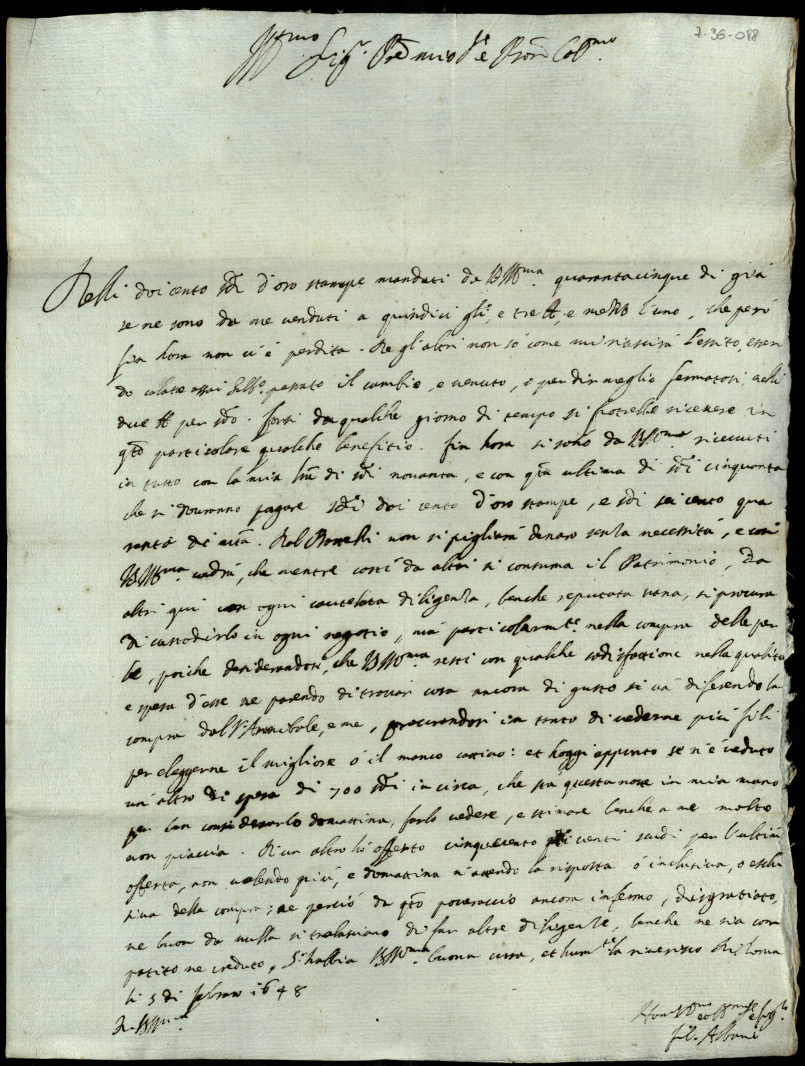 7-36-088
Ill.mo Sig.r Pre mio Sre e Pron Col.mo
Delli doi cento sdi d'oro stampe mandati da V.S.Ill.ma quarantacinque di già
se ne sono da me venduti a quindici gli, e tre e mezzo l'uno, che però
fin hora non ci è perdita. De gl'altri non sò come mi riuscirà l'essito, essen
do calate assai passato il cambio, e venuto, o per dir meglio fermatosi nelli
due per sdo. forsi da qualche giorno di tempo si potrebbe ricevere in
qto particolare qualche benefitio. fin hora si sono da V.S.Ill.ma ricevuti
in tutto con la mia di sdi novanta, e con qta ultima di sdi cinquanta
che si dovranno pagare sdi doi cento d'oro stampe, e sdi sei cento qua
ranta di mta. Dal non si pigliarà denaro senza necessità, e così
V.S.Ill.ma vedrà, che mentre costì da altri si consuma il Patrimonio, Da
altri qui con ogni cautelata diligenza, benche reputata vana, si procura
di custodirlo in ogni negotio, mà particolarmte nella compra delle per
le, poiche desiderandosi, che V.S.Ill.ma resti con qualche sodisfattione nella qualità
e spesa d'esse ne parendo di trovar cosa ancora di gusto si và diferendo la
compra dal Sr Annibale, e me, procurandosi in tanto di vederne più fili
per eleggerne il migliore ò il manco cattivo: et hoggi appunto se n'è veduto
un'altro di spesa di 700 sdi in circa, che stà questa notte in mia mano
per ben considerarlo domattina, farlo vedere, e stimare benche a me molto
non piaccia. D'un altro hò offerto cinquecento venti scudi per l'ultima
offerta, non volendo più, e domattina n'attendo la risposta ò inclusiva, o esclu
siva della compra; ne perciò da qto poveraccio ancora infermo, disgratiato,
ne buon da nulla si tralasciano di far altre diligenze, benche ne sia com
patito ne creduto. S'habbia V.S.Ill.ma buona cura, et humte la riverisco Di Roma
li 5 di febraro 1648
Di V.S.Ill.ma
fil. Albani